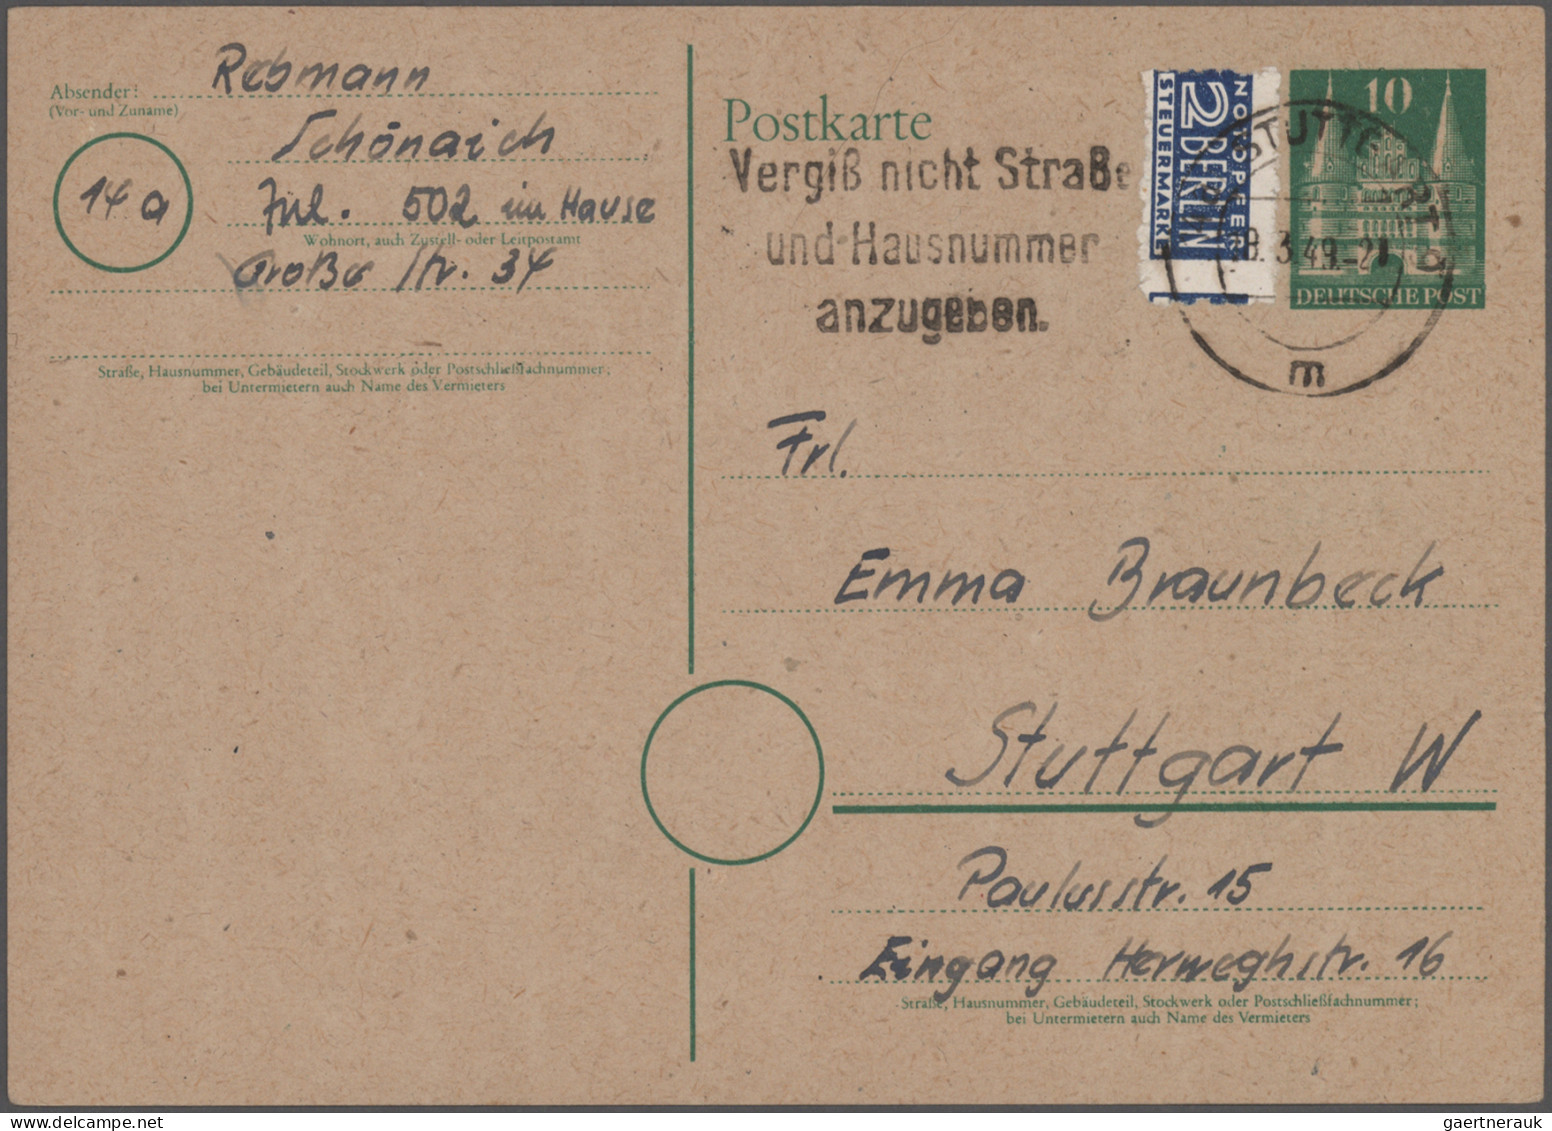 Absender: Rebmann
(Vor- und Zuname)
Schönaich
14a
Frl. 502 im Hause
Wohnort, auch Zustell- oder Leitpostamt
Große Str. 34
Straße, Hausnummer, Gebäudeteil, Stockwerk oder Postschließfachnummer;
bei Untermietern auch Name des Vermieters
Postkarte
Vergiß nicht Straße
und Hausnummer
anzugeben.
NOTOPFER
2 BERLIN
STEUERMARKE
STUTTGART 9
8.3.49.-21
m
10
DEUTSCHE POST
Frl.
Emma Braunbeck
Stuttgart W
Paulusstr. 15
Eingang Herweghstr. 16
Straße, Hausnummer, Gebäudeteil, Stockwerk oder Postschließfachnummer;
bei Untermietern auch Name des Vermieters
gaertnerauk